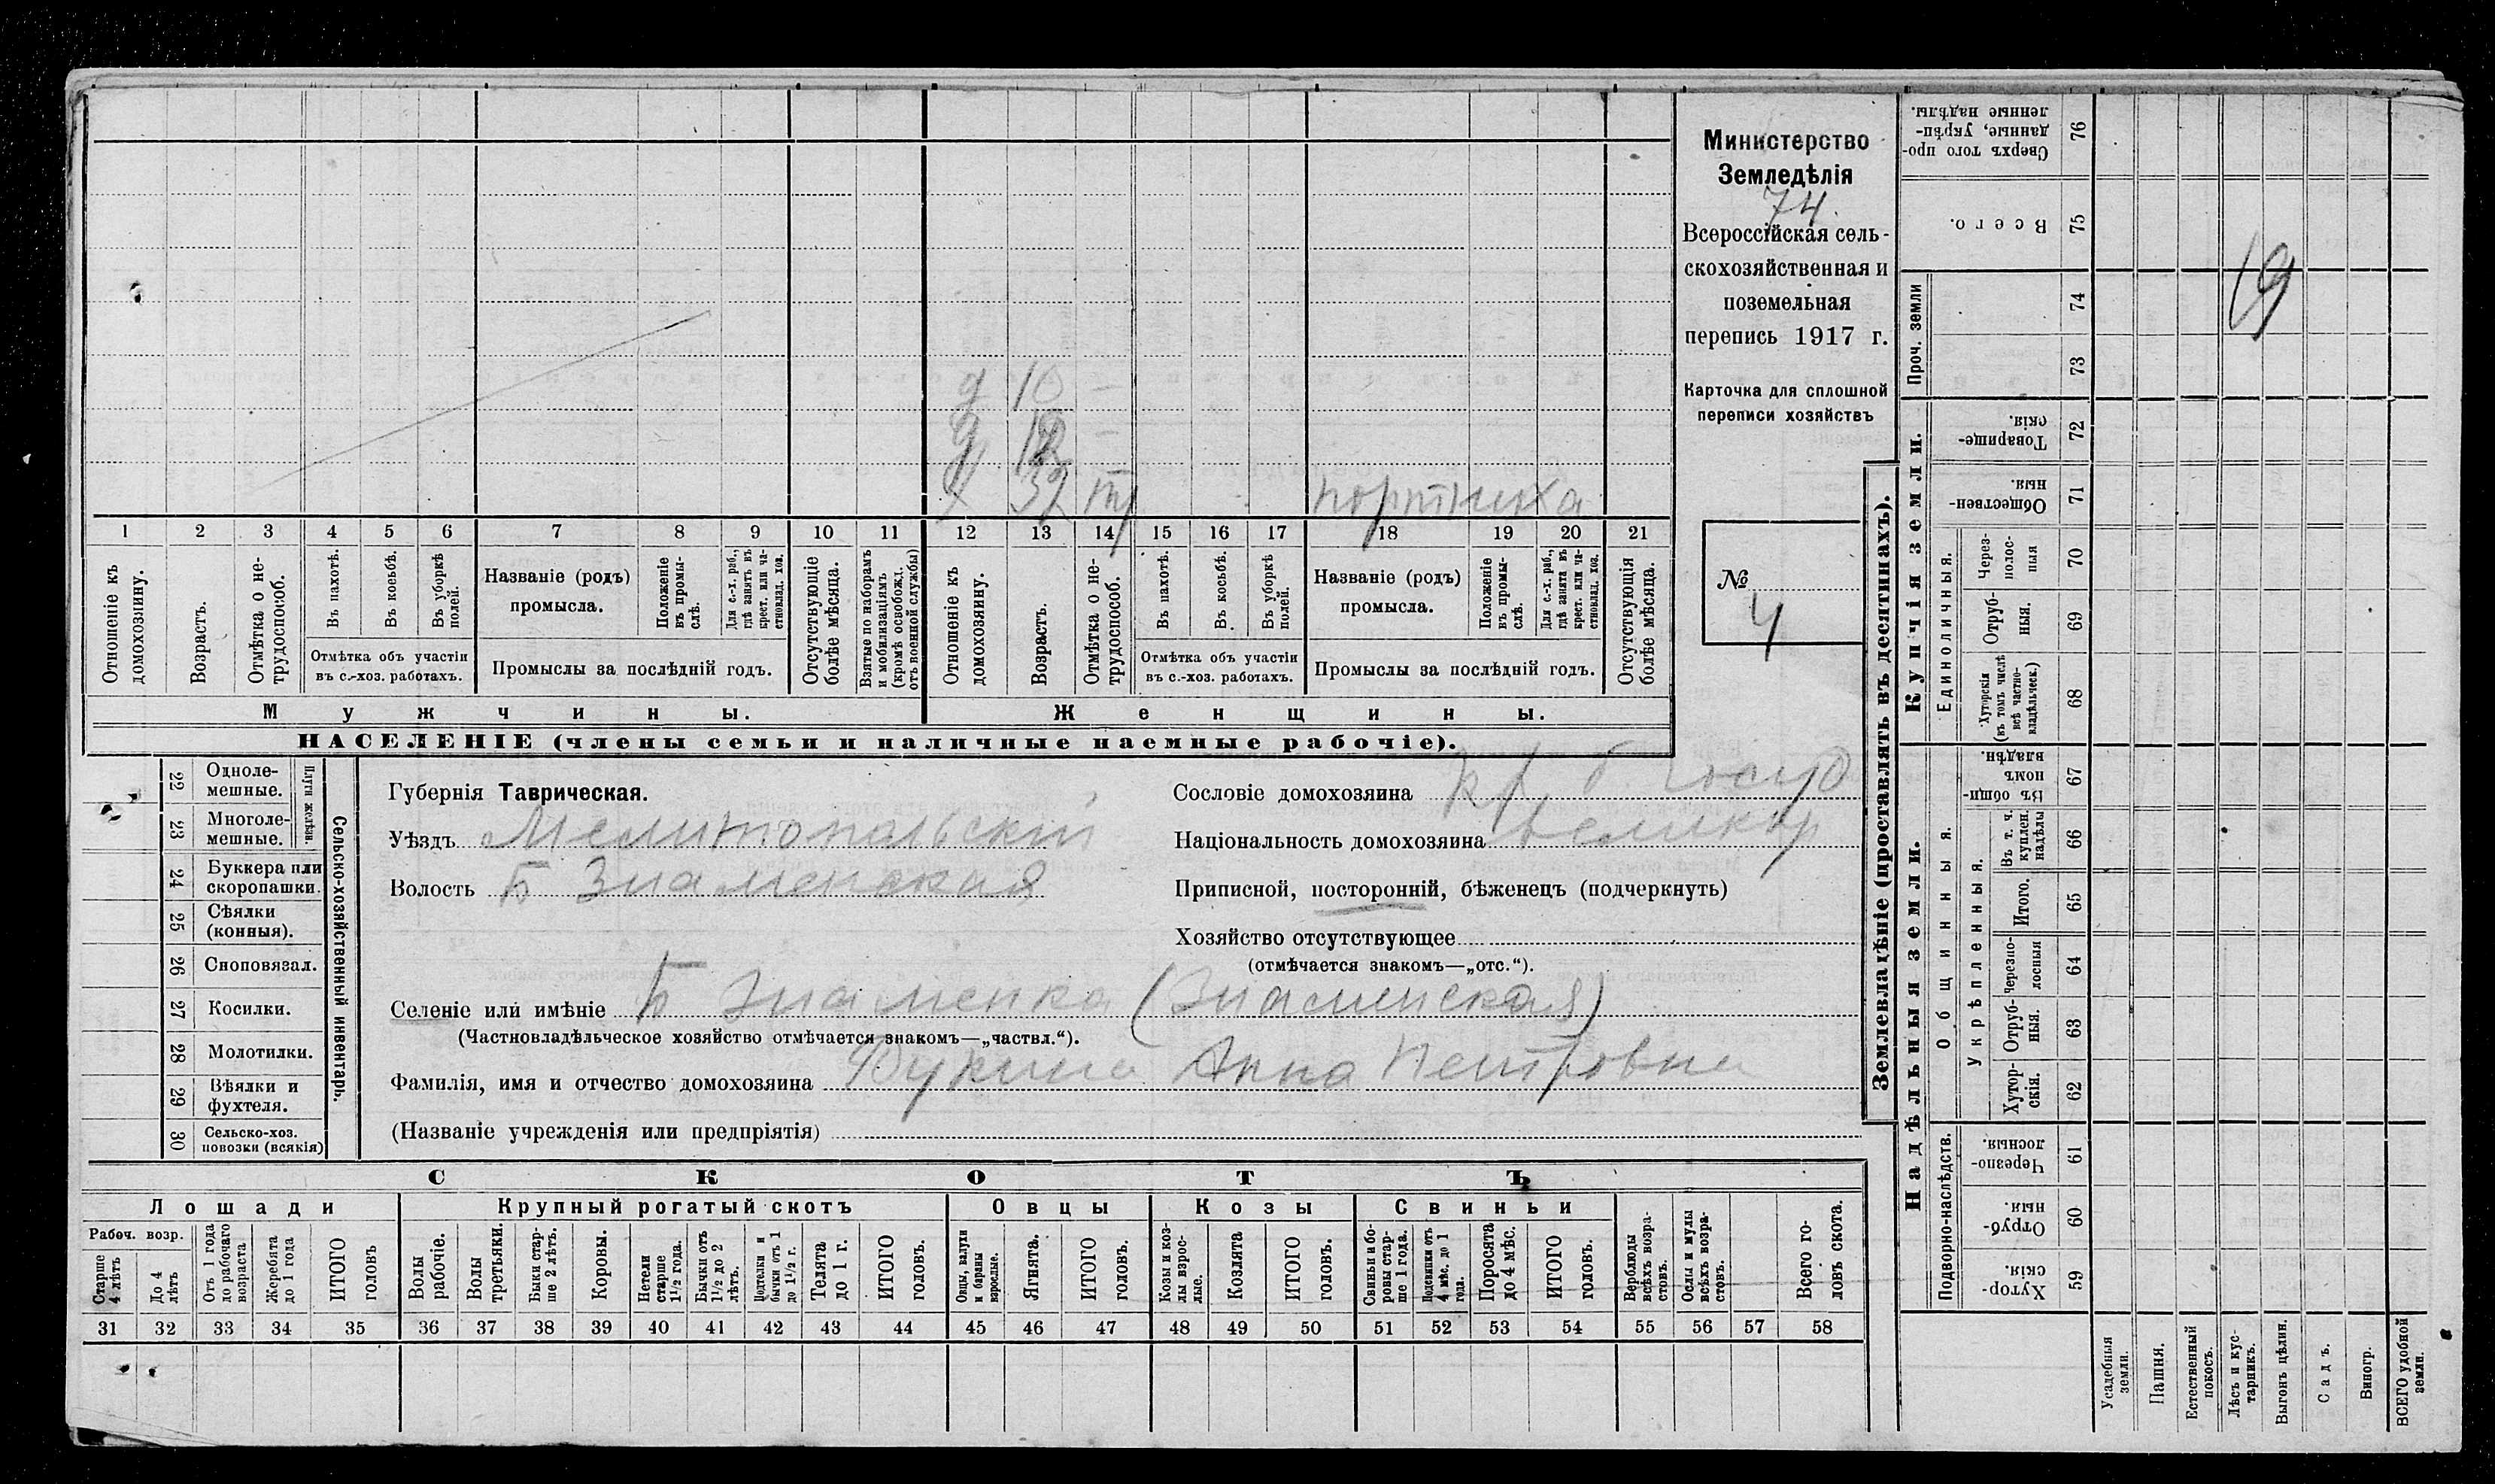 Министерство
Земледѣлія
74.
Всероссійская сель-
скохозяйственная и
поземельная
перепись 1917 г.
Карточка для сплошной
переписи хозяйствъ
№
4
д 10 –
д 12 –
х 37 портниха
1 2 3 4 5 6 7 8 9 10 11 12 13 14 15 16 17 18 19 20 21
Отношеніе къ домохозяину.
Возрастъ.
Отмѣтка о не-трудоспособ.
Въ пахотѣ.
Въ косьбѣ.
Въ уборкѣ полей.
Отмѣтка объ участіи
въ с.-хоз. работахъ.
Названіе (родъ)
промысла.
Положеніе въ промы-слѣ.
Для с.-х. раб., гдѣ занятъ въ крест. или ча-стновлад. хоз.
Промыслы за послѣдній годъ.
Отсутствующіе болѣе мѣсяца.
Взятые по наборамъ и мобилизаціямъ (кромѣ освобожд. отъ военной службы)
Отношеніе къ домохозяину.
Возрастъ.
Отмѣтка о не-трудоспособ.
Въ пахотѣ.
Въ косьбѣ.
Въ уборкѣ полей.
Отмѣтка объ участіи
въ с.-хоз. работахъ.
Названіе (родъ)
промысла.
Положеніе въ промы-слѣ.
Для с.-х. раб., гдѣ занята въ крест. или ча-стновлад. хоз.
Промыслы за послѣдній годъ.
Отсутствующія болѣе мѣсяца.
Мужчины.
Женщины.
НАСЕЛЕНІЕ (члены семьи и наличные наемные рабочіе).
Сельско-хозяйственный инвентарь.
Плуги желѣзн.
22 Одноле-мешные.
23 Многоле-мешные.
24 Буккера или скоропашки.
25 Сѣялки (конныя).
26 Сноповязал.
27 Косилки.
28 Молотилки.
29 Вѣялки и фухтеля.
30 Сельско-хоз. повозки (всякія)
Губернія Таврическая.
Уѣздъ Мелитопольскій
Волость Б Знаменская
Сословіе домохозяина кр. б. госуд
Національность домохозяина великор
Приписной, посторонній, бѣженецъ (подчеркнуть)
Хозяйство отсутствующее
(отмѣчается знакомъ—„отс.“).
Селеніе или имѣніе Б Знаменка (Знаменская)
(Частновладѣльческое хозяйство отмѣчается знакомъ—„частвл.“).
Фамилія, имя и отчество домохозяина Анна Петровна
(Названіе учрежденія или предпріятія)
СКОТЪ
Лошади
Крупный рогатый скотъ
Овцы
Козы
Свиньи
Рабоч. возр.
Старше 4 лѣтъ
До 4 лѣтъ
Отъ 1 года до рабочаго возраста
Жеребята до 1 года
ИТОГО головъ
Волы рабочіе.
Волы третьяки.
Быки стар-ше 2 лѣтъ.
Коровы.
Нетели старше 1½ года.
Бычки отъ 1½ до 2 лѣтъ.
Подтелки и бычки отъ 1 до 1½ г.
Телята до 1 г.
ИТОГО головъ.
Овцы, валухи и бараны взрослые.
Ягнята.
ИТОГО головъ.
Козы и коз-лы взрос-лые.
Козлята
ИТОГО головъ.
Свиньи и бо-ровы стар-ше 1 года.
Подсвинки отъ 4 мѣс. до 1 года.
Поросята до 4 мѣс.
ИТОГО головъ.
Верблюды всѣхъ возра-стовъ.
Ослы и мулы всѣхъ возра-стовъ.
Всего го-ловъ скота.
31 32 33 34 35 36 37 38 39 40 41 42 43 44 45 46 47 48 49 50 51 52 53 54 55 56 57 58
Землевладѣніе (проставлять въ десятинахъ).
Купчія земли.
Надѣльныя земли.
Сверхъ того про-данные, укрѣп-ленные надѣлы. 76
Всего. 75
Проч. земли
74
73
Товарище-скія. 72
Обществен-ныя. 71
Единоличныя.
Через-полос-ныя 70
Отруб-ныя. 69
Хуторскія (въ томъ числѣ всѣ частно-владѣльческ.) 68
Общинныя.
Въ общи-номъ владѣн. 67
Укрѣпленныя.
Въ т. ч. куплен. надѣлы 66
Итого. 65
Черезпо-лосныя 64
Отруб-ныя. 63
Хутор-скія. 62
Подворно-наслѣдств.
Черезпо-лосныя. 61
Отруб-ныя. 60
Хутор-скія. 59
Усадебныя земли.
Пашня.
Естественный покосъ.
Лѣсъ и кус-тарникъ.
Выгонъ цѣлин.
Садъ.
Виногр.
ВСЕГО удобной земли.
19